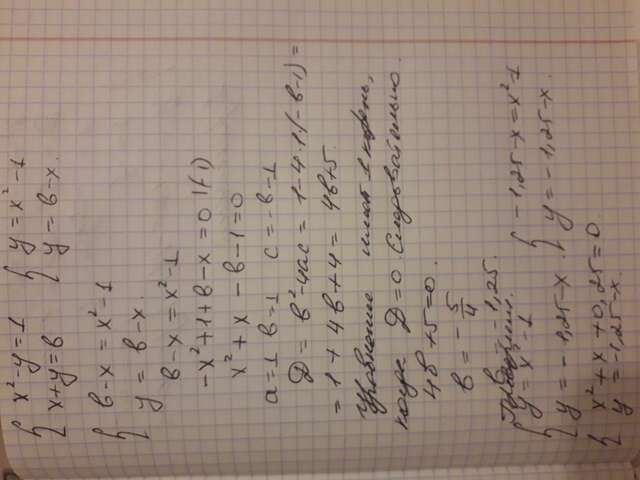 { x² - y = 1 { y = x² - 1
{ x + y = в { y = в - x.
{ в - x = x² - 1
{ y = в - x.
в - x = x² - 1
- x² + 1 + в - x = 0 | (-1)
x² + x - в - 1 = 0
a = 1 в = 1 c = -в - 1
D = в² - 4ac = 1 - 4·1·(-в-1) =
= 1 + 4в + 4 = 4в + 5.
Уравнение имеет 1 корень,
когда D = 0. Следовательно.
4в + 5 = 0.
в = - 5/4
- 1,25.
{ y = x² - 1 { - 1,25 - x = x² - 1
{ y = - 1,25 - x. { y = - 1,25 - x.
{ x² + x + 0,25 = 0
{ y = -1,25 - x.